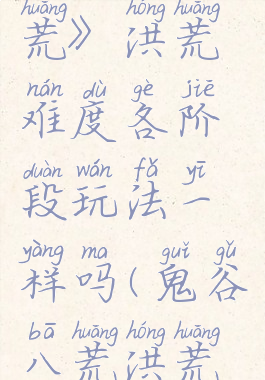 huāng hóng huāng
荒》 洪荒
nán dù gè jiē
难度各阶
duàn wán fǎ yī
段玩法一
yàng ma guǐ gǔ
样吗(鬼谷
bā huāng hóng huāng
八荒洪荒